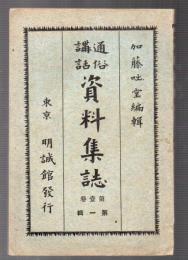 加藤咄堂編輯
通俗講話
資料集誌
第壹卷
第一輯
東京 明誠館發行